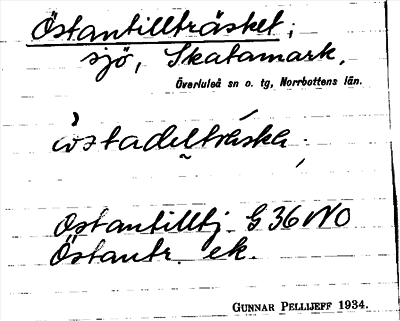 Östantillträsket;
sjö, Skatamark,
Överluleå sn o. tg, Norrbottens län.
östadelträska;
Östantilltj. G 36 NO
Östantr. ek.
GUNNAR PELLIJEFF 1934.